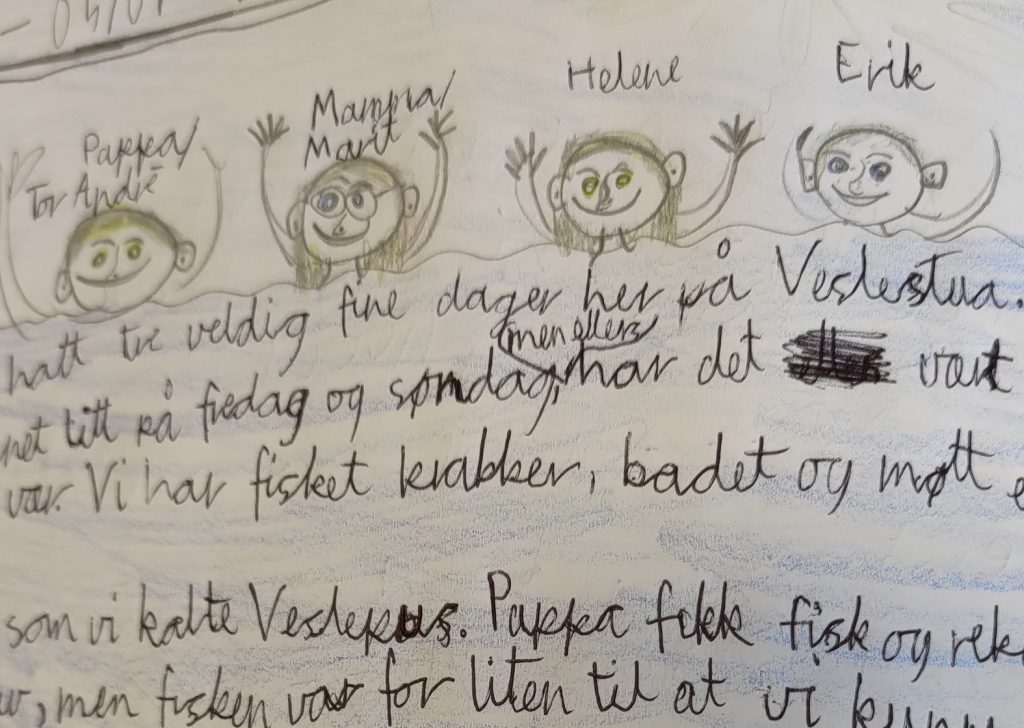 Pappa/
Tor André
Mamma/
Marit
Helene
Erik
hatt tre veldig fine dager her på Veslestua.
(men ellers)
net litt på fredag og søndag, har det vært
vær. Vi har fisket krabber, badet og møtt e
som vi kalte Veslepus. Pappa fikk fisk og rek
, men fisken var for liten til at vi kunn